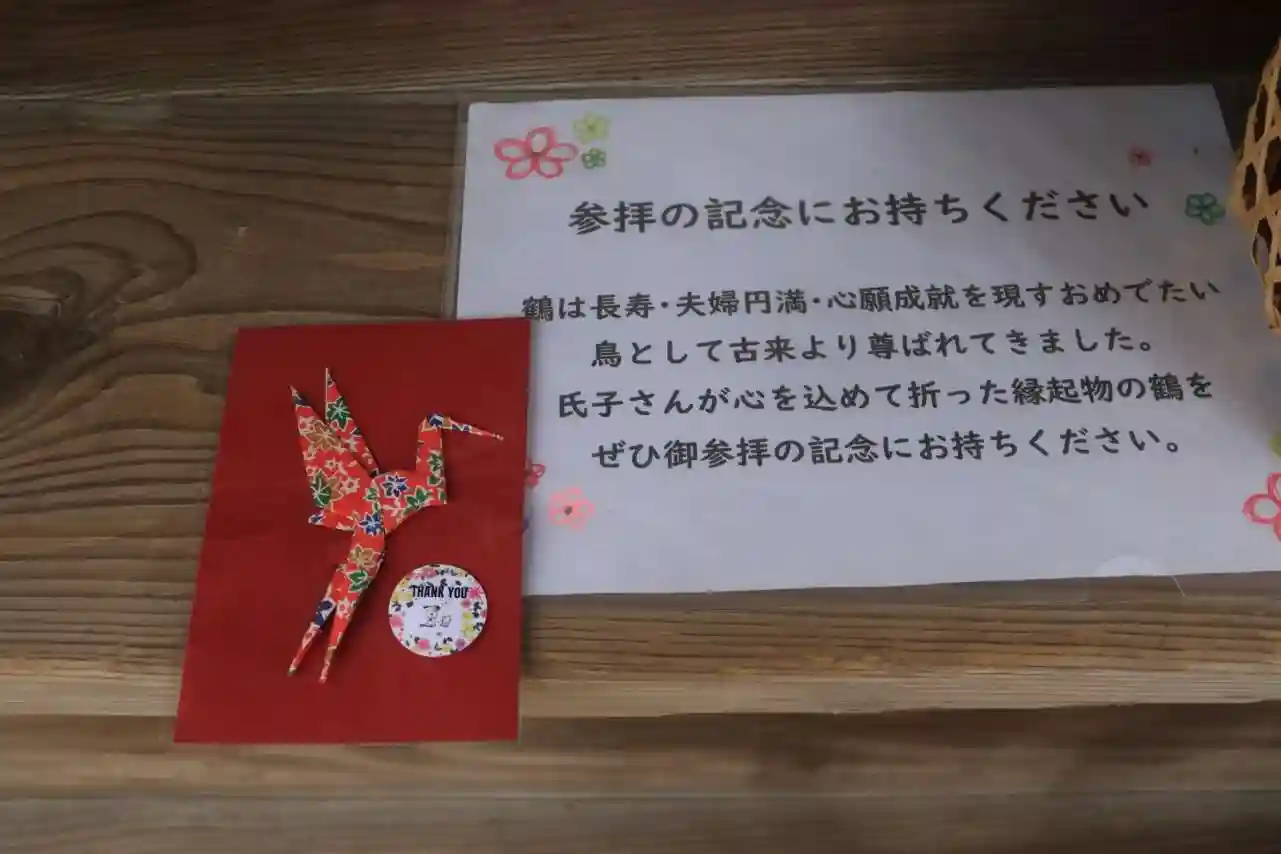 参拝の記念にお持ちください
鶴は長寿・夫婦円満・心願成就を現すおめでたい
鳥として古来より尊ばれてきました。
氏子さんが心を込めて折った縁起物の鶴を
ぜひ御参拝の記念にお持ちください。
THANK YOU